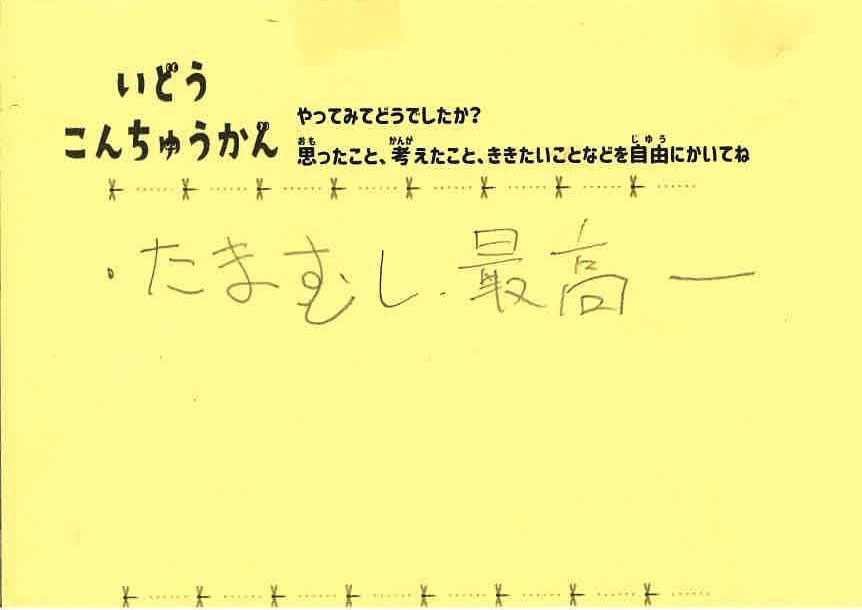 いどう
こんちゅうかん
やってみてどうでしたか?
思ったこと、考えたこと、ききたいことなどを自由にかいてね
・たまむし.最高ー